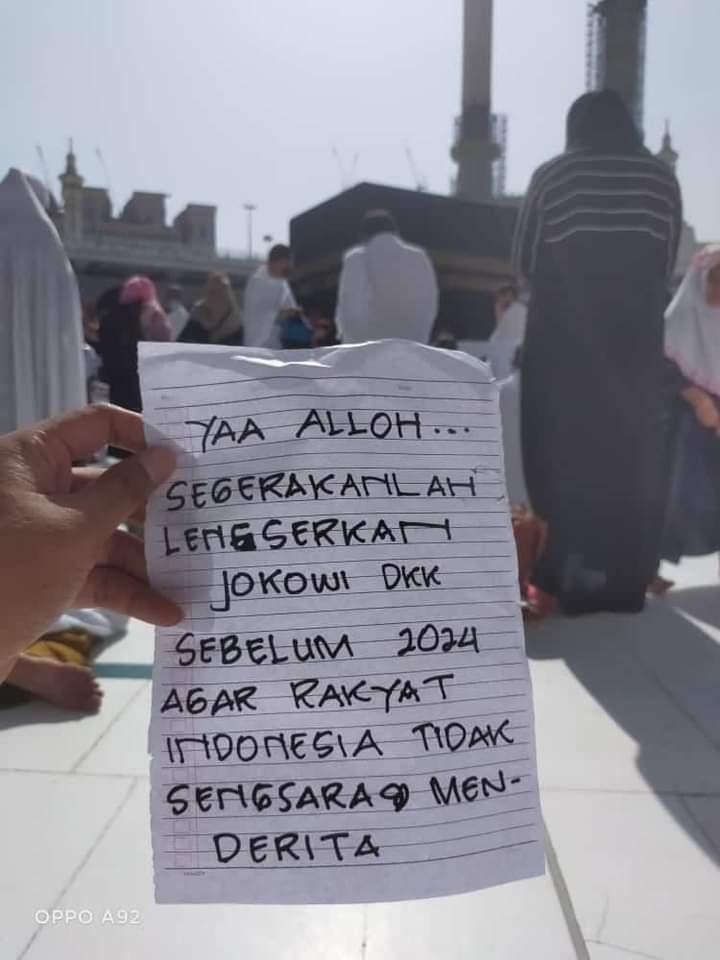 YAA ALLOH...
SEGERAKANLAH
LENGSERKAN
JOKOWI DKK
SEBELUM 2024
AGAR RAKYAT
INDONESIA TIDAK
SENGSARA & MEN-
DERITA
OPPO A92